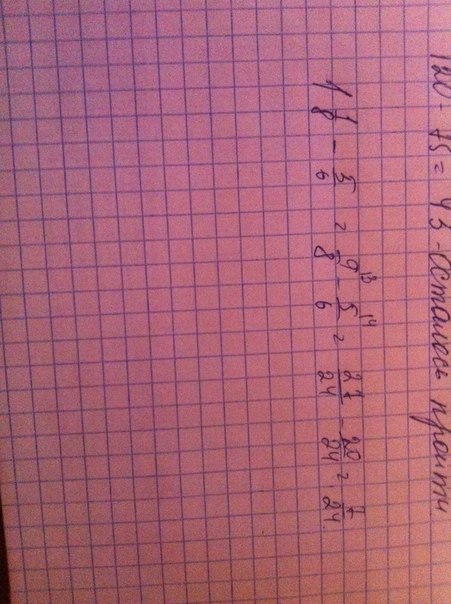 120 - 75 = 43 - осталось пройти
1 1/8 - 5/6 = 9/8 |3 - 5/6 |4 = 27/24 - 20/24 = 7/24